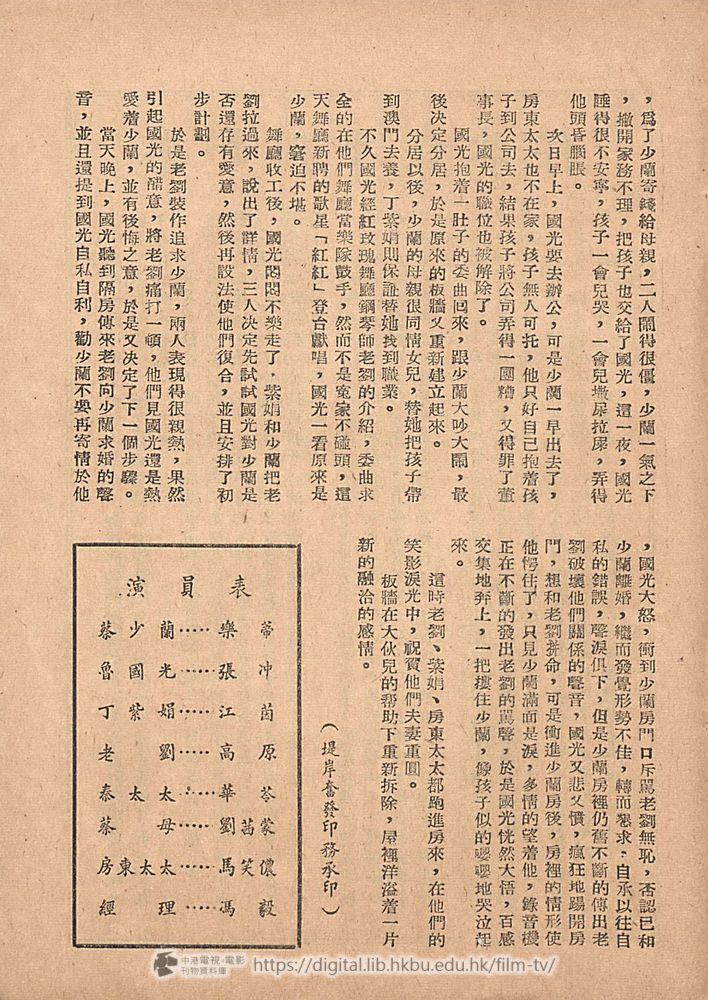 ，爲了少蘭寄錢給母親，二人鬧得很僵，少蘭一氣之下
，撇開家務不理，把孩子也交給了國光，這一夜，國光
睡得很不安寧，孩子一會兒哭，一會兒撒尿拉屎，弄得
他頭昏腦脹。
次日早上，國光要去辦公，可是少蘭一早出去了，
房東太太也不在家，孩子無人可托，他只好自己抱着孩
子到公司去，結果孩子將公司弄得一團糟，又得罪了董
事長，國光的職位也被解除了。
國光抱着一肚子的委曲回來，跟少蘭大吵大鬧，最
後决定分居，於是原來的板牆又重新建立起來。
分居以後，少蘭的母親很同情女兒，替她把孩子帶
到澳門去養，丁紫娟則保証替她找到職業。
不久國光經紅玫瑰舞廳鋼琴師老劉的介紹，委曲求
全的在他們舞廳當樂隊鼓手，然而不是寃家不碰頭，這
天舞廳新聘的歌星「紅紅」登台獻唱，國光一看原來是
少蘭，窘迫不堪。
舞廳收工後，國光悶悶不樂走了，紫娟和少蘭把老
劉拉過來，說出了詳情，三人决定先試試國光對少蘭是
否還存有愛意，然後再設法使他們復合，並且安排了初
步計劃。
於是老劉裝作追求少蘭，兩人表現得很親熱，果然
引起國光的醋意，將老劉痛打一頓，他們見國光還是熱
愛着少蘭，並有後悔之意，於是又决定了下一個步驟。
當天晚上，國光聽到隔房傳來老劉向少蘭求婚的聲
音，並且還提到國光自私自利，勸少蘭不要再寄情於他
，國光大怒，衝到少蘭房門口斥罵老劉無恥，否認已和
少蘭離婚，繼而發覺形勢不佳，轉而懇求，自承以往自
私的錯誤，聲淚俱下，但是少蘭房裡仍舊不斷的傳出老
劉破壞他們關係的聲音，國光又悲又憤，瘋狂地踢開房
門，想和老劉拚命，可是衝進少蘭房後，房裡的情形使
他愕住了，只見少蘭滿面是淚，多情的望着他，錄音機
正在不斷的發出老劉的罵聲，於是國光恍然大悟，百感
交集地奔上，一把摟住少蘭，像孩子似的嚶嚶地哭泣起
來。
這時老劉、紫娟、房東太太都跑進房來，在他們的
笑影淚光中，祝賀他們夫妻重圓。
板牆在大伙兒的幫助下重新拆除，屋裡洋溢着一片
新的融洽的感情。
（堤岸奮發印務承印）
演員表
蔡少蘭……樂蒂
魯國光……張冲
丁紫娟……江茵
老劉……高原
秦太太……華苓
蔡母……劉茜蒙
房東太太……馬笑儂
經理……馮毅
中港電視·電影
刊物資料庫
https://digital.lib.hkbu.edu.hk/film-tv/